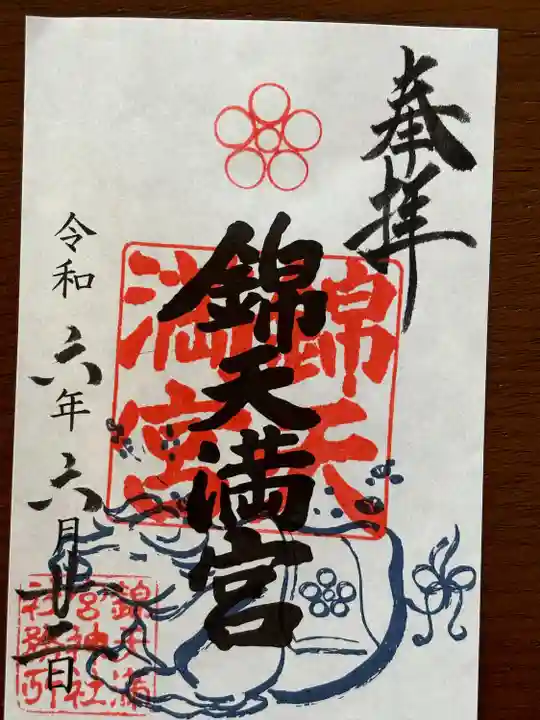 奉拝
錦天満宮
錦天
満宮
令和六年六月廿二日
錦天満
宮神社
社務所